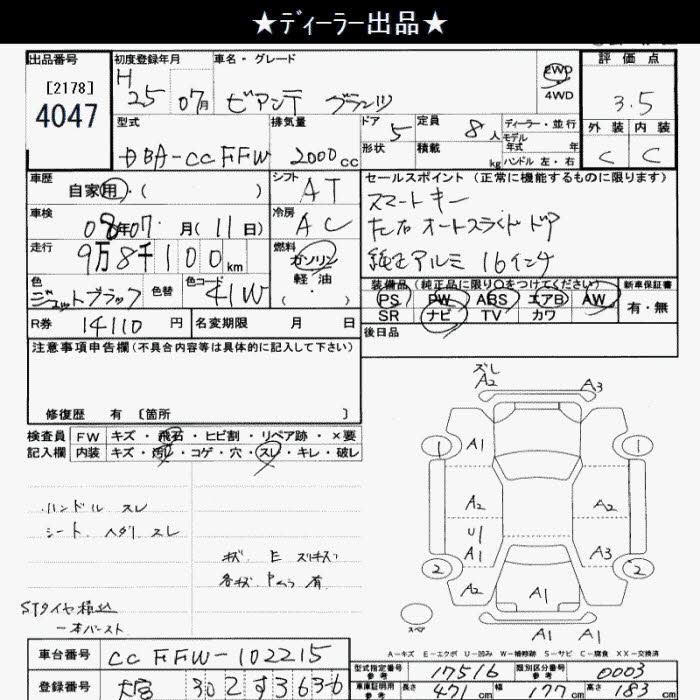 ★ディーラー出品★
出品番号 初度登録年月 車名・グレード 評価点
[2178] H 25年 07月 ビアンテ グランツ 2WD 4WD 3.5
4047
型式 排気量 ドア 5 定員 8人 ディーラー・並行 外装 内装
DBA-CCFFW 2000cc 形状 積載 kg モデル年式 年 C C
ハンドル 左・右
車歴 自家用・( ) シフト AT セールスポイント(正常に機能するものに限ります)
車検 08年07月(11日) 冷房 AC スマートキー
走行 9万8千100km 燃料 ガソリン 軽油 ・( ) オートスライドドア
純正アルミ 16インチ
色 ジェットブラック 色替 色コード 41W 装備品(純正品に限り○をつけてください) 新車保証書
PS PW ABS エアB AW 有・無
SR ナビ TV カワ
R券 14110円 名変期限 月 日 後日品
注意事項申告欄(不具合内容等は具体的に記入して下さい)
修復歴 有 〔箇所 〕
検査員 FW キズ・飛石・ヒビ割・リペア跡・×要
記入欄 内装 キズ・汚レ・コゲ・穴・スレ・キレ・破レ
ハンドル スレ
シート、ヘタリ スレ
キズ E
各キズ 有
STタイヤ積込
一本バースト
ズレ
A2 A3
1 A1 1
A2 A2
U1
A1 A3
2 A2 A1 2
スペア A1 A1
A-キズ E-エクボ U-凹み W-補修跡 S-サビ C-腐食 XX-交換済
車台番号 CCFFW-102215
型式指定番号 参考 17516 類別区分番号 参考 0003
登録番号 大宮 302 す 3636
車庫証明用 参考 長さ 471cm 幅 177cm 高さ 183cm